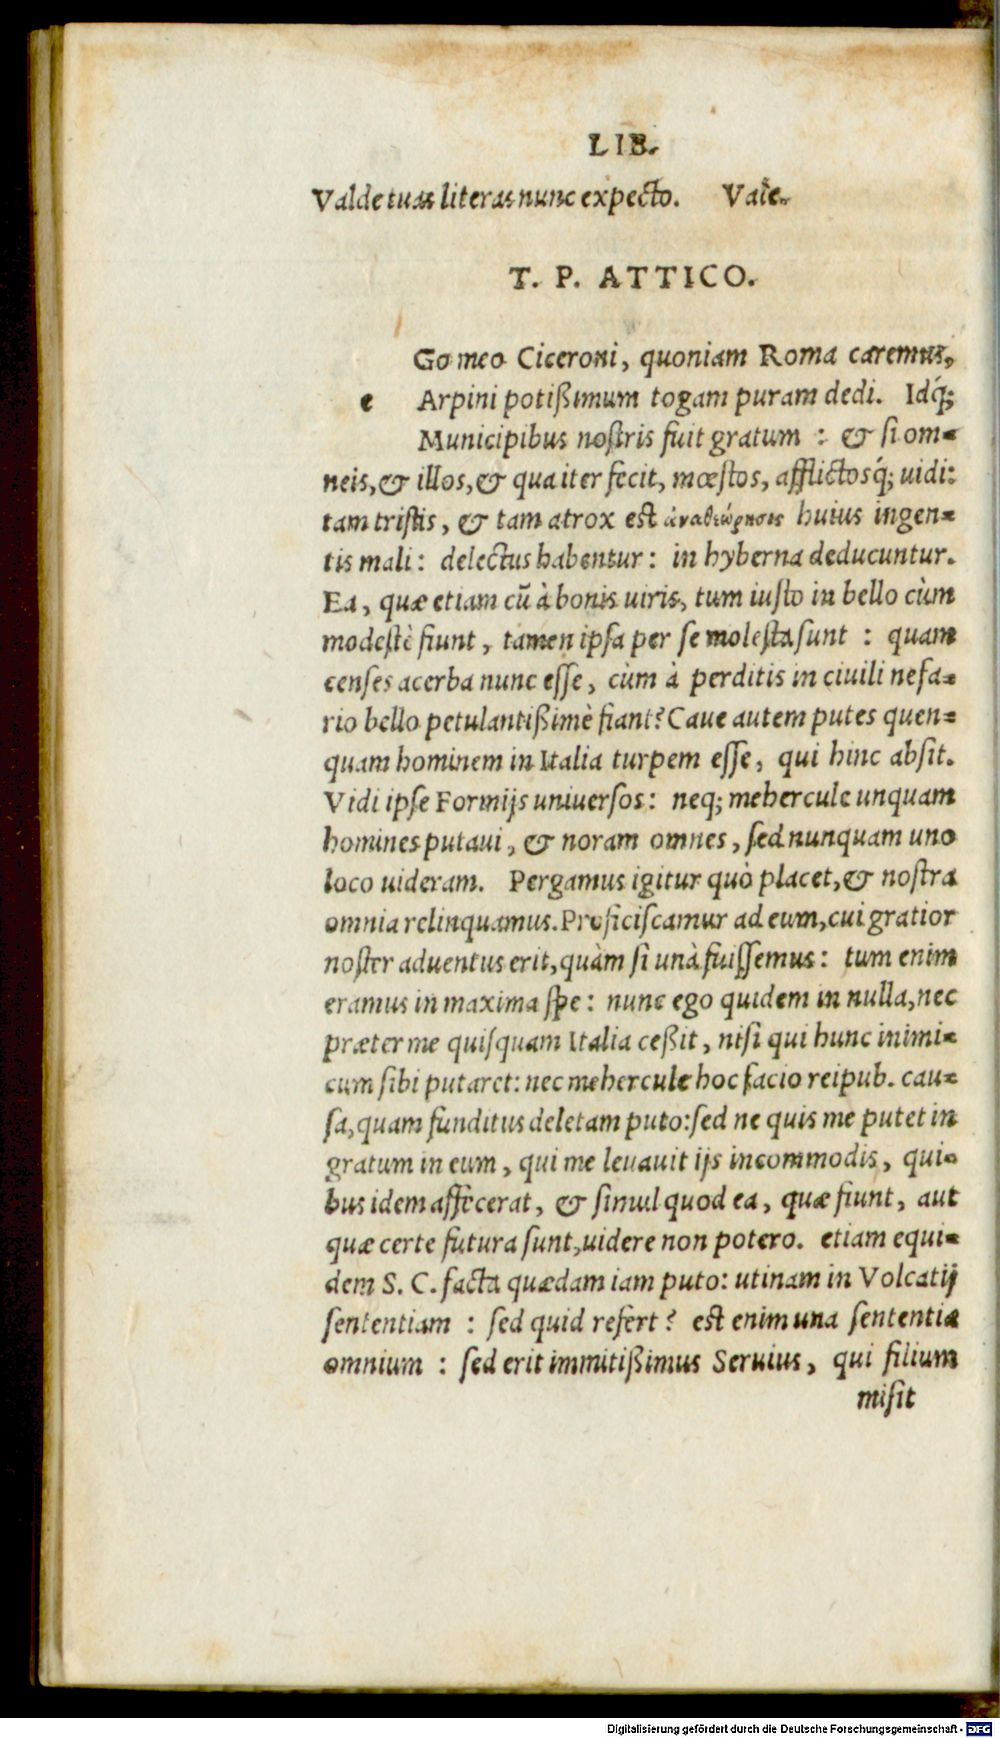 LIB.
Valde tuas literas nunc expecto. Vale.
T. P. ATTICO.
Go meo Ciceroni, quoniam Roma caremus,
e Arpini potißimum togam puram dedi. Idq́;
Municipibus nostris fuit gratum : & si om=
neis, & illos, & qua iter fecit, mœstos, afflictosq́; uidi:
tam tristis, & tam atrox est ἀναθεώρησις huius ingen=
tis mali: delectus habentur: in hyberna deducuntur.
Ea, quæ etiam cū à bonis uiris, tum iusto in bello cùm
modestè fiunt, tamen ipsa per se molesta sunt : quam
censes acerba nunc esse, cùm à perditis in ciuili nefa=
rio bello petulantißimè fiant? Caue autem putes quen=
quam hominem in Italia turpem esse, qui hinc absit.
Vidi ipse Formijs uniuersos: neq; mehercule unquam
homines putaui, & noram omnes, sed nunquam uno
loco uideram. Pergamus igitur quò placet, & nostra
omnia relinquamus. Proficiscamur ad eum, cui gratior
noster aduentus erit, quàm si unà fuissemus: tum enim
eramus in maxima spe: nunc ego quidem in nulla, nec
præter me quisquam Italia ceßit, nisi qui hunc inimi=
cum sibi putaret: nec mehercule hoc facio reipub. cau=
sa, quam funditus deletam puto: sed ne quis me putet in
gratum in eum, qui me leuauit ijs incommodis, qui=
bus idem affecerat, & simul quod ea, quæ fiunt, aut
quæ certe futura sunt, uidere non potero. etiam equi=
dem S. C. facta quædam iam puto: utinam in Volcatij
sententiam : sed quid refert? est enim una sententia
omnium : sed erit immitißimus Seruius, qui filium
misit
Digitalisierung gefördert durch die Deutsche Forschungsgemeinschaft - DFG